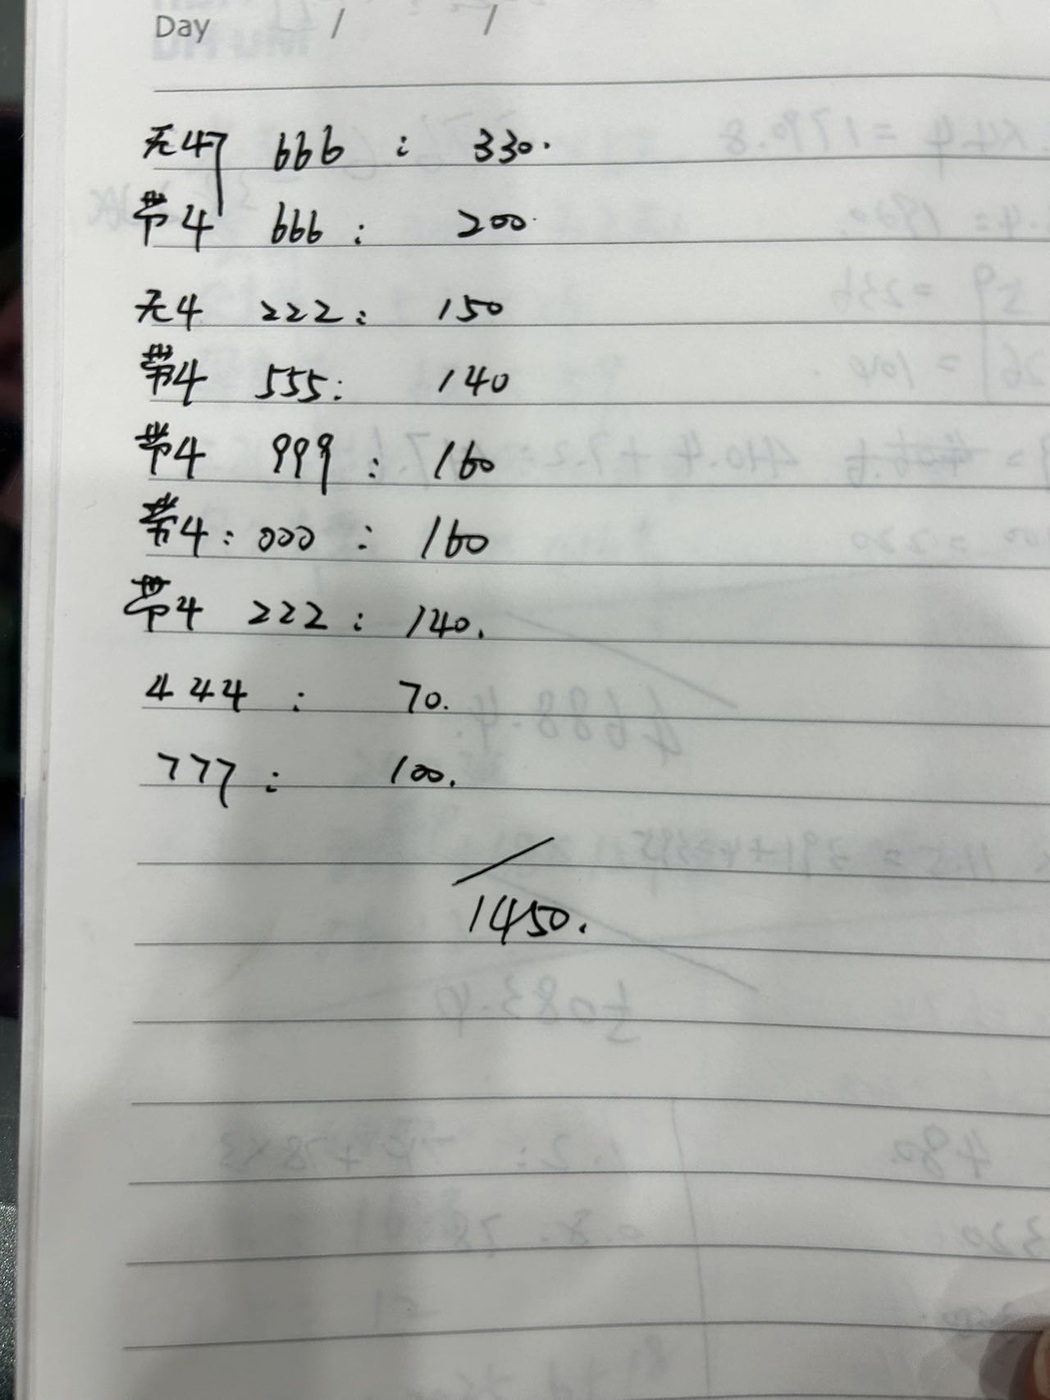 Day / /
无47 666 : 330.
带4 666 : 200.
无4 222 : 150
带4 555 : 140
带4 999 : 160
带4 : 000 : 160
带4 222 : 140.
444 : 70.
777 : 100.
1450.